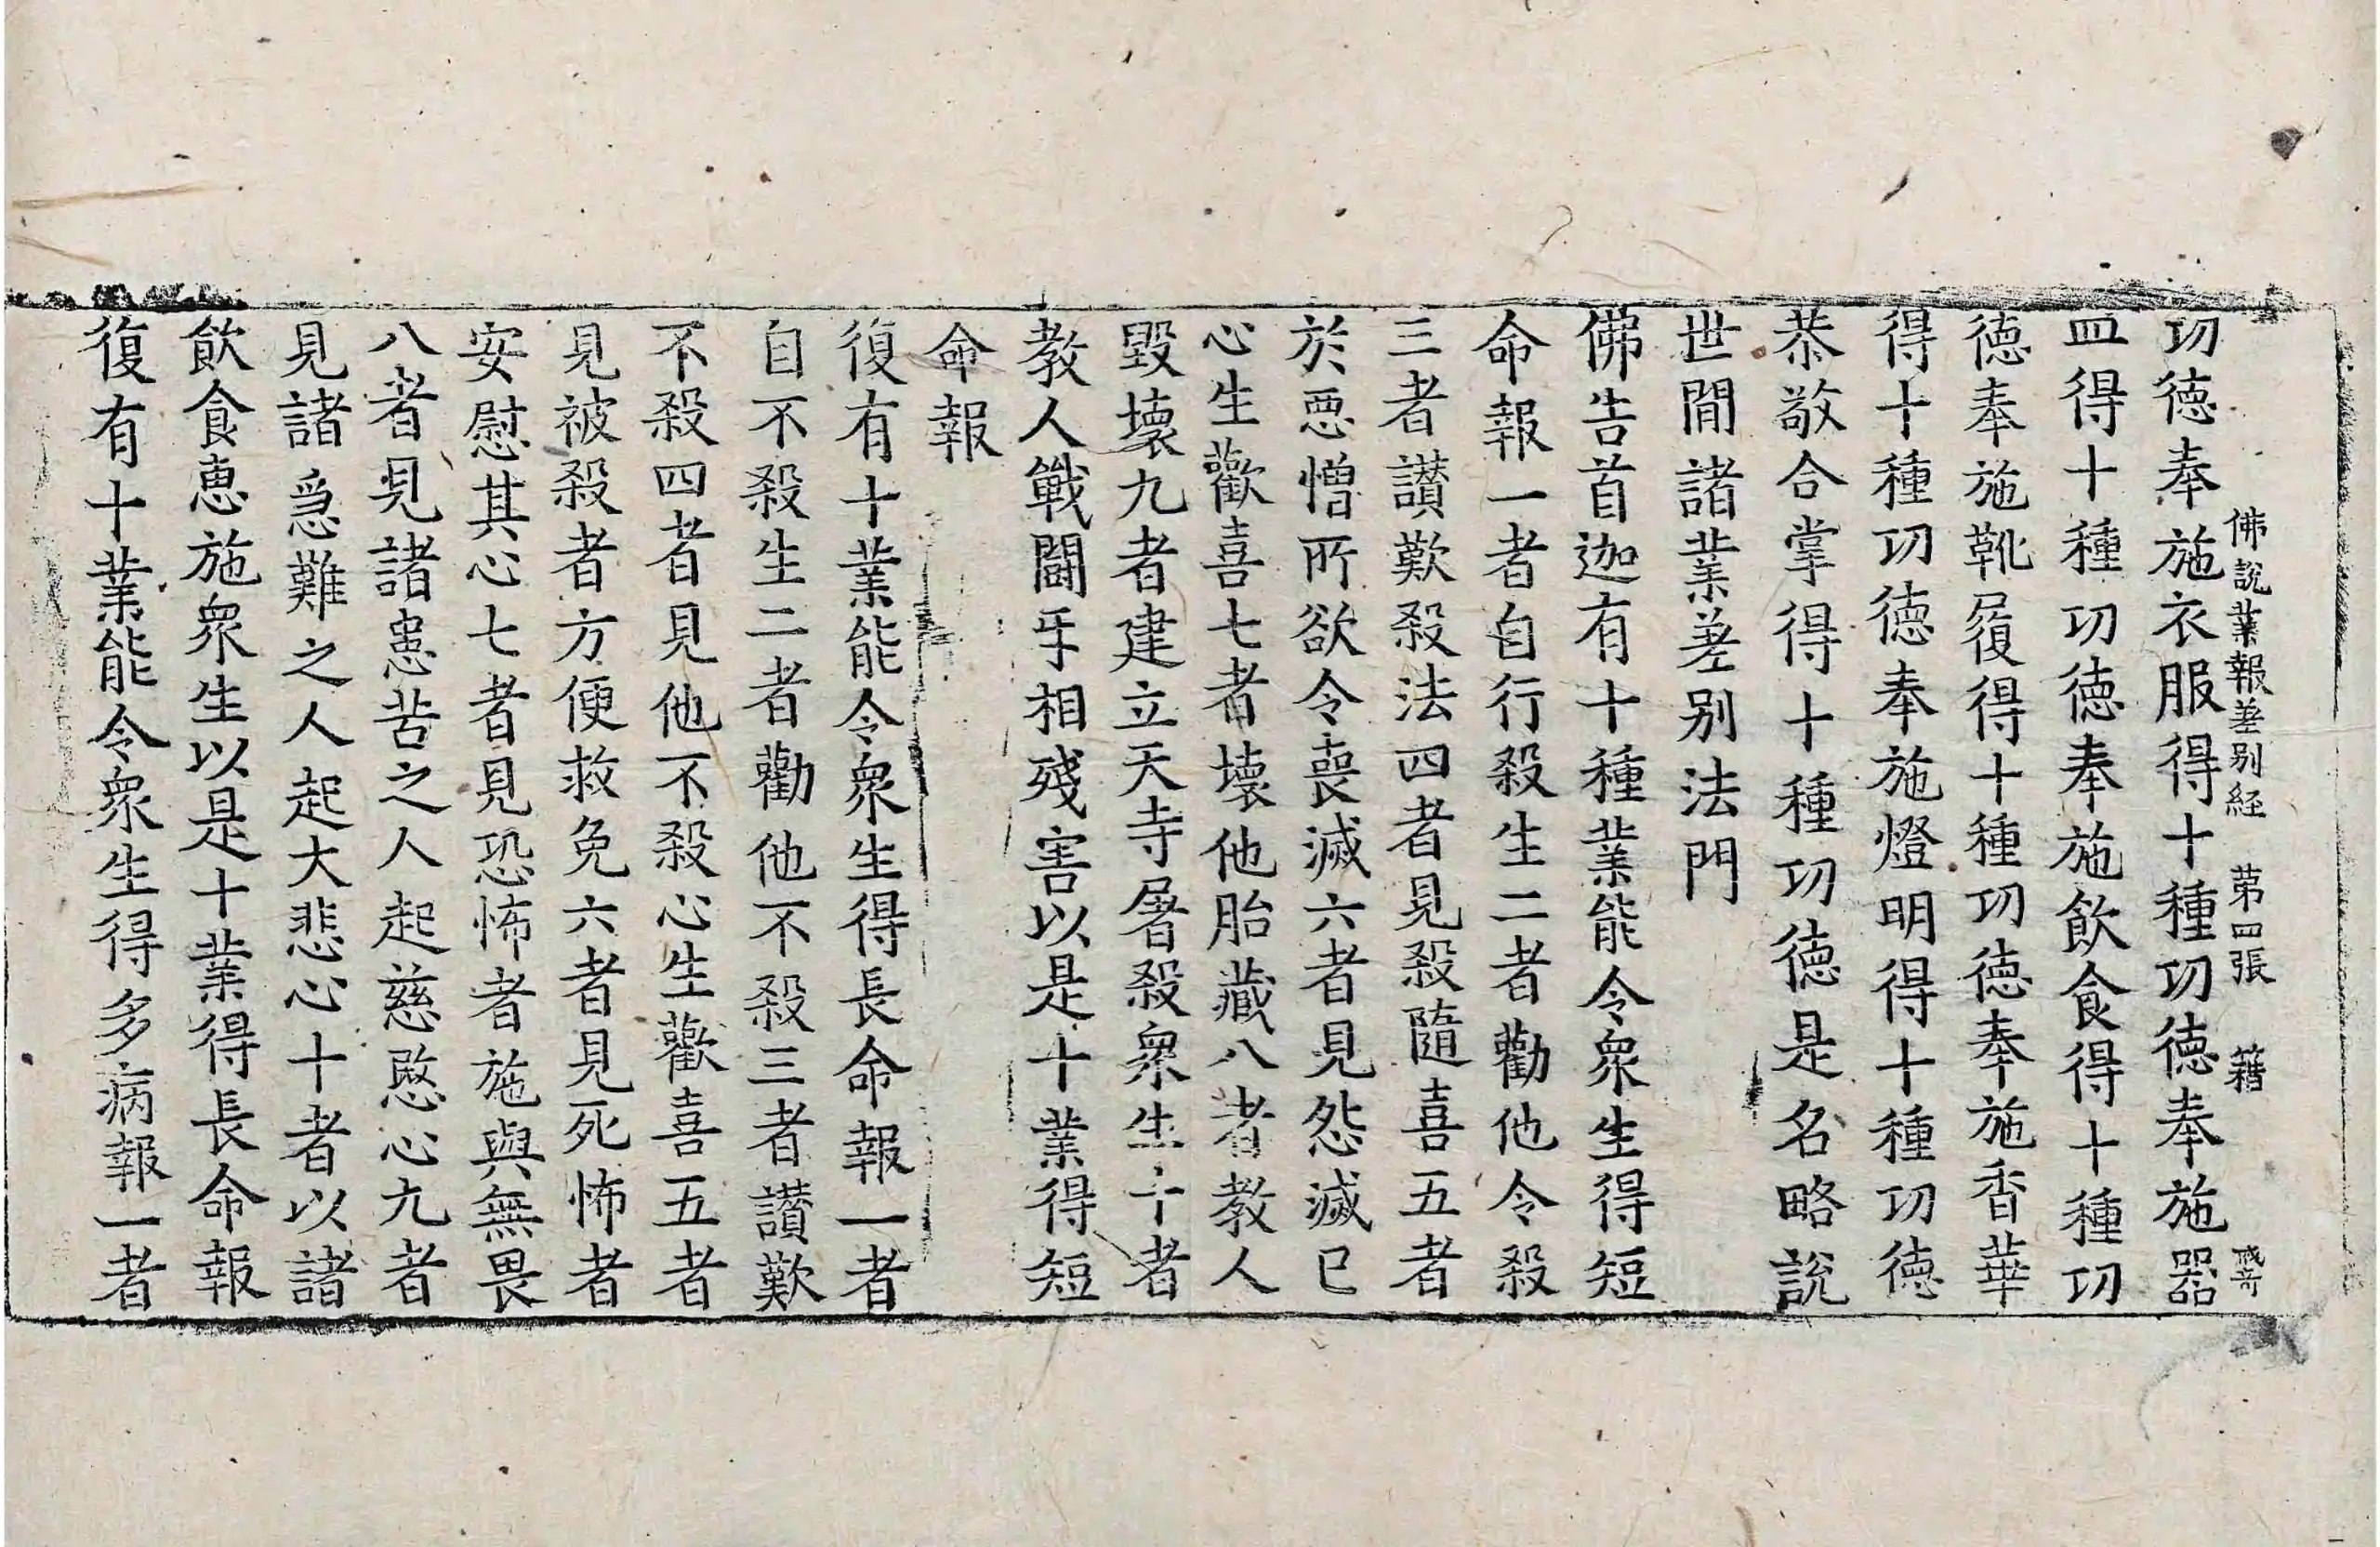 佛說業報差别経 苐四張 籍
功德奉施衣服得十種功德奉施器
皿得十種功德奉施飲食得十種功
德奉施靴履得十種功德奉施香華
得十種功德奉施燈明得十種功德
恭敬合掌得十種功德是名略說
世間諸業差别法門
佛告首迦有十種業能令衆生得短
命報一者自行殺生二者勸他令殺
三者讃歎殺法四者見殺隨喜五者
於惡憎所欲令喪滅六者見怨滅已
心生歡喜七者壞他胎藏八者教人
毀壞九者建立天寺屠殺衆生十者
教人戰鬪㸦相殘害以是十業得短
命報
復有十業能令衆生得長命報一者
自不殺生二者勸他不殺三者讃歎
不殺四者見他不殺心生歡喜五者
見被殺者方便救免六者見死怖者
安慰其心七者見恐怖者施與無畏
八者見諸患苦之人起慈愍心九者
見諸急難之人起大悲心十者以諸
飲食惠施衆生以是十業得長命報
復有十業能令衆生得多病報一者